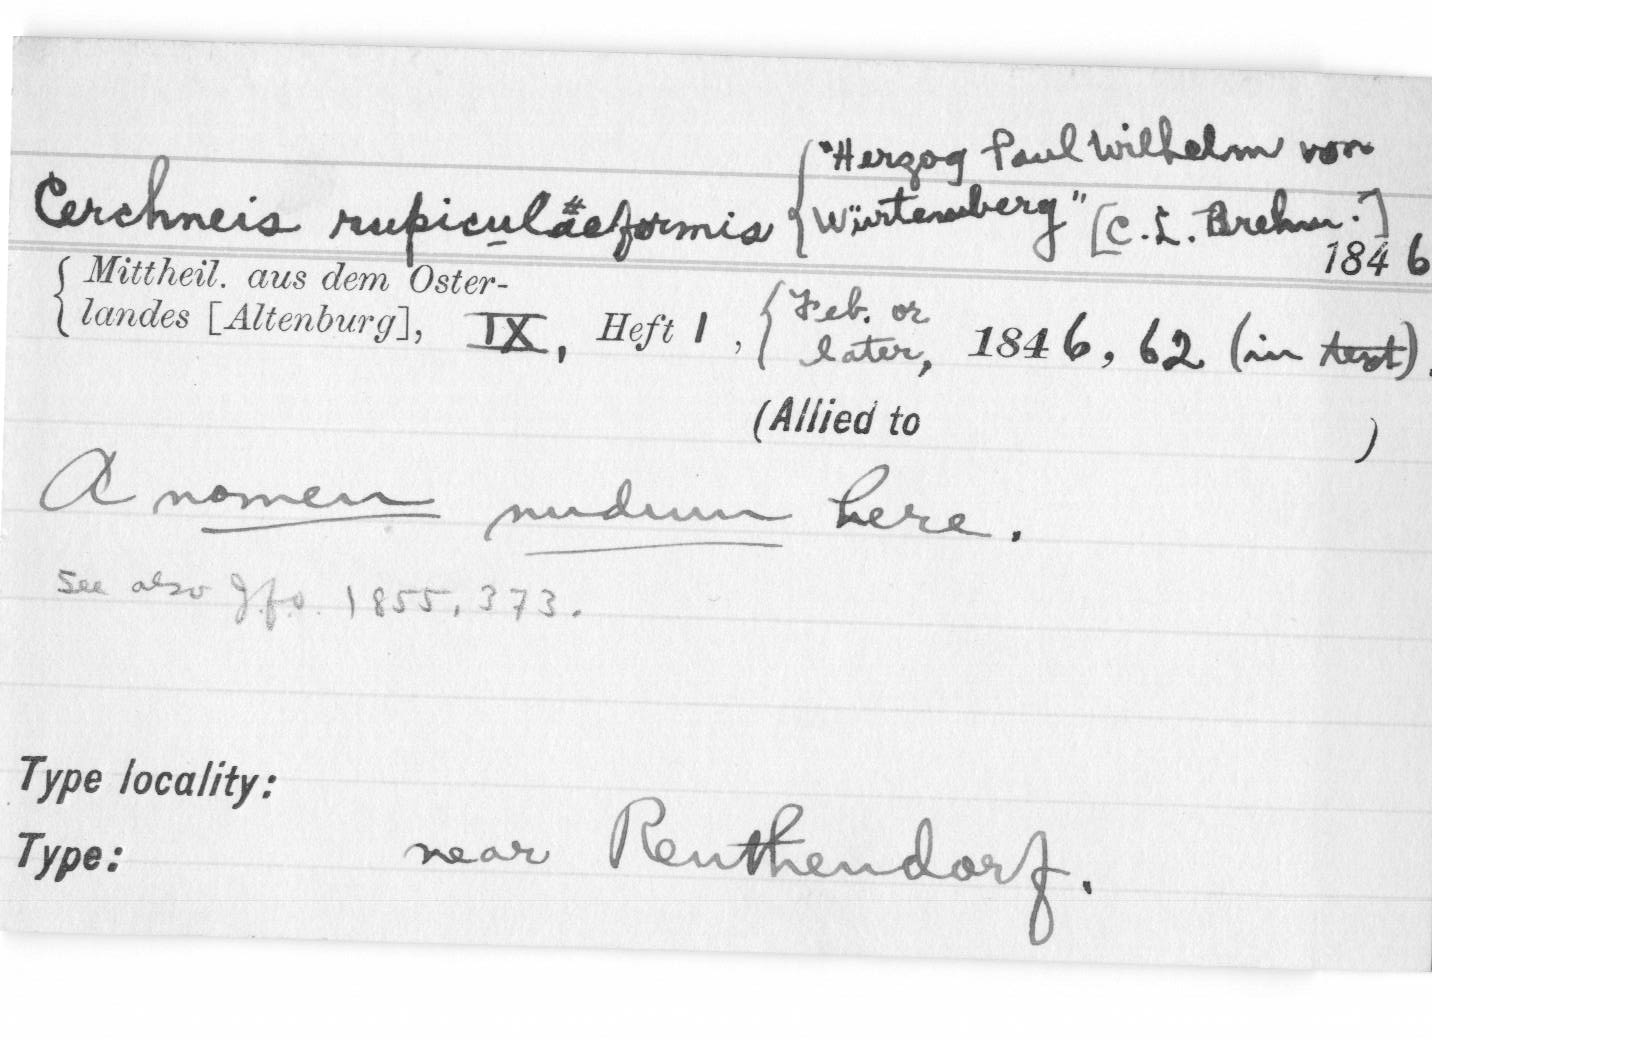 "Herzog Paul Wilhelm von
Cerchneis rupiculäeformis Würtemberg" [C. L. Brehm.]
1846
Mittheil. aus dem Oster-
landes [Altenburg], IX, Heft 1, Feb. or later, 1846, 62 (in text).
(Allied to )
A nomen nudum here.
See also J.f.o. 1855, 373.
Type locality:
Type: near Renthendorf.